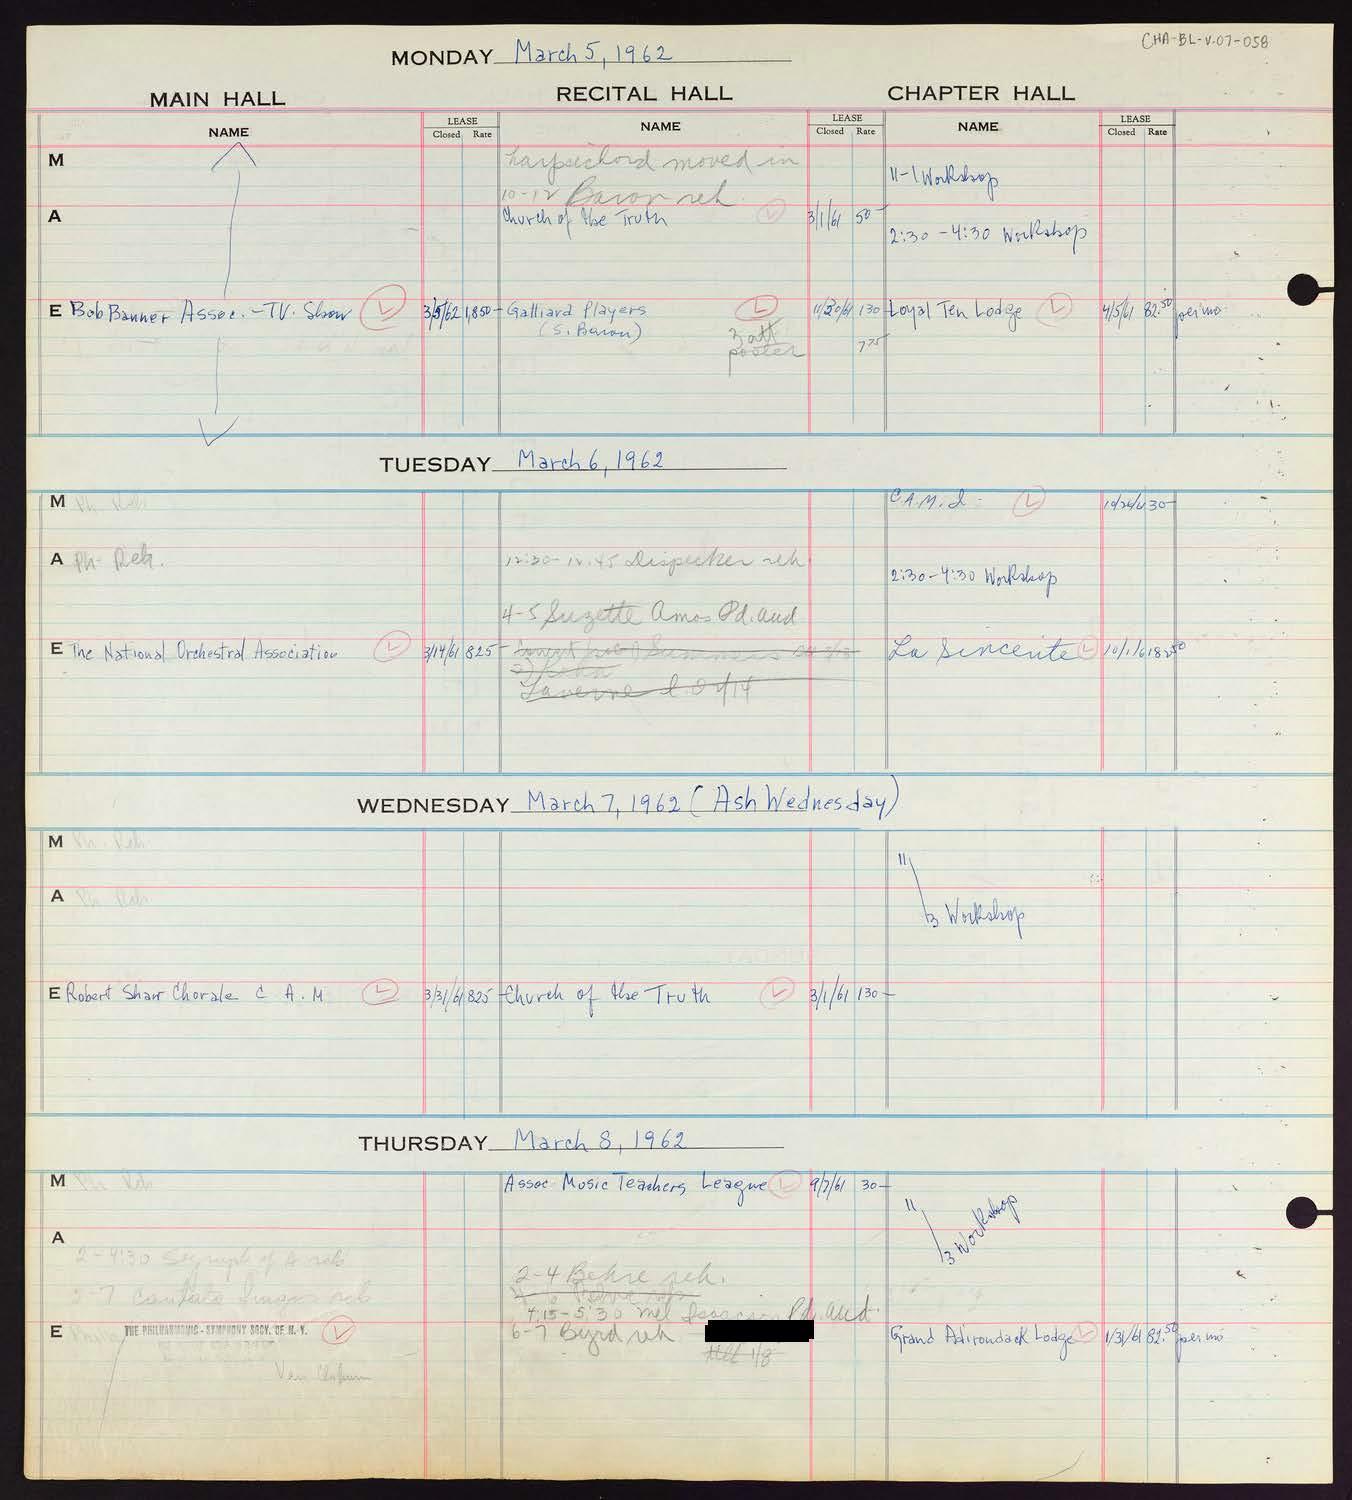 CHA-BL-V.07-058
MONDAY March 5, 1962
MAIN HALL
RECITAL HALL
CHAPTER HALL
NAME
LEASE
Closed Rate
NAME
LEASE
Closed Rate
NAME
LEASE
Closed Rate
M
harpsichord moved in
10-12 Baron reh.
11-1 Workshop
A
Church of the Truth 3/1/61 50-
2:30-4:30 Workshop
E Bob Banner Assoc. - TV. Show L 3/5/62 1,850-
Galliard Players L 11/20/61 130-
(S. Baron)
3 att
poster
7 75
Loyal Ten Lodge L 4/5/61 82.50 per mo.
TUESDAY March 6, 1962
M Ph. Reh.
C.A.M.I. L 30-
A Ph. Reh.
12:30-12:45 Dispecker reh.
2:30-4:30 Workshop
4-5 Suzette Amos Pd. aud
E The National Orchestral Association L 3/14/61 825-
La Sincerite L 10/1/61 82.50
WEDNESDAY March 7, 1962 (Ash Wednesday)
M Ph. Reh.
A Ph. Reh.
11
3 Workshop
E Robert Shaw Chorale C.A.M. L 3/31/61 825-
Church of the Truth L 3/1/61 130-
THURSDAY March 8, 1962
M Ph. Reh
Assoc. Music Teachers League L 9/7/61 30-
11
3 Workshop
A
2-4:30 Symph of A reh
2-4 Behre reh.
5-7 Cantata Singers reh
4:15-5:30 Mel Pd. aud.
E THE PHILHARMONIC-SYMPHONY SOCY. OF N. Y. L
6-7 Byrd reh
1/8
Van Cliburn
Grand Adirondack Lodge L 1/31/61 82.50 per mo